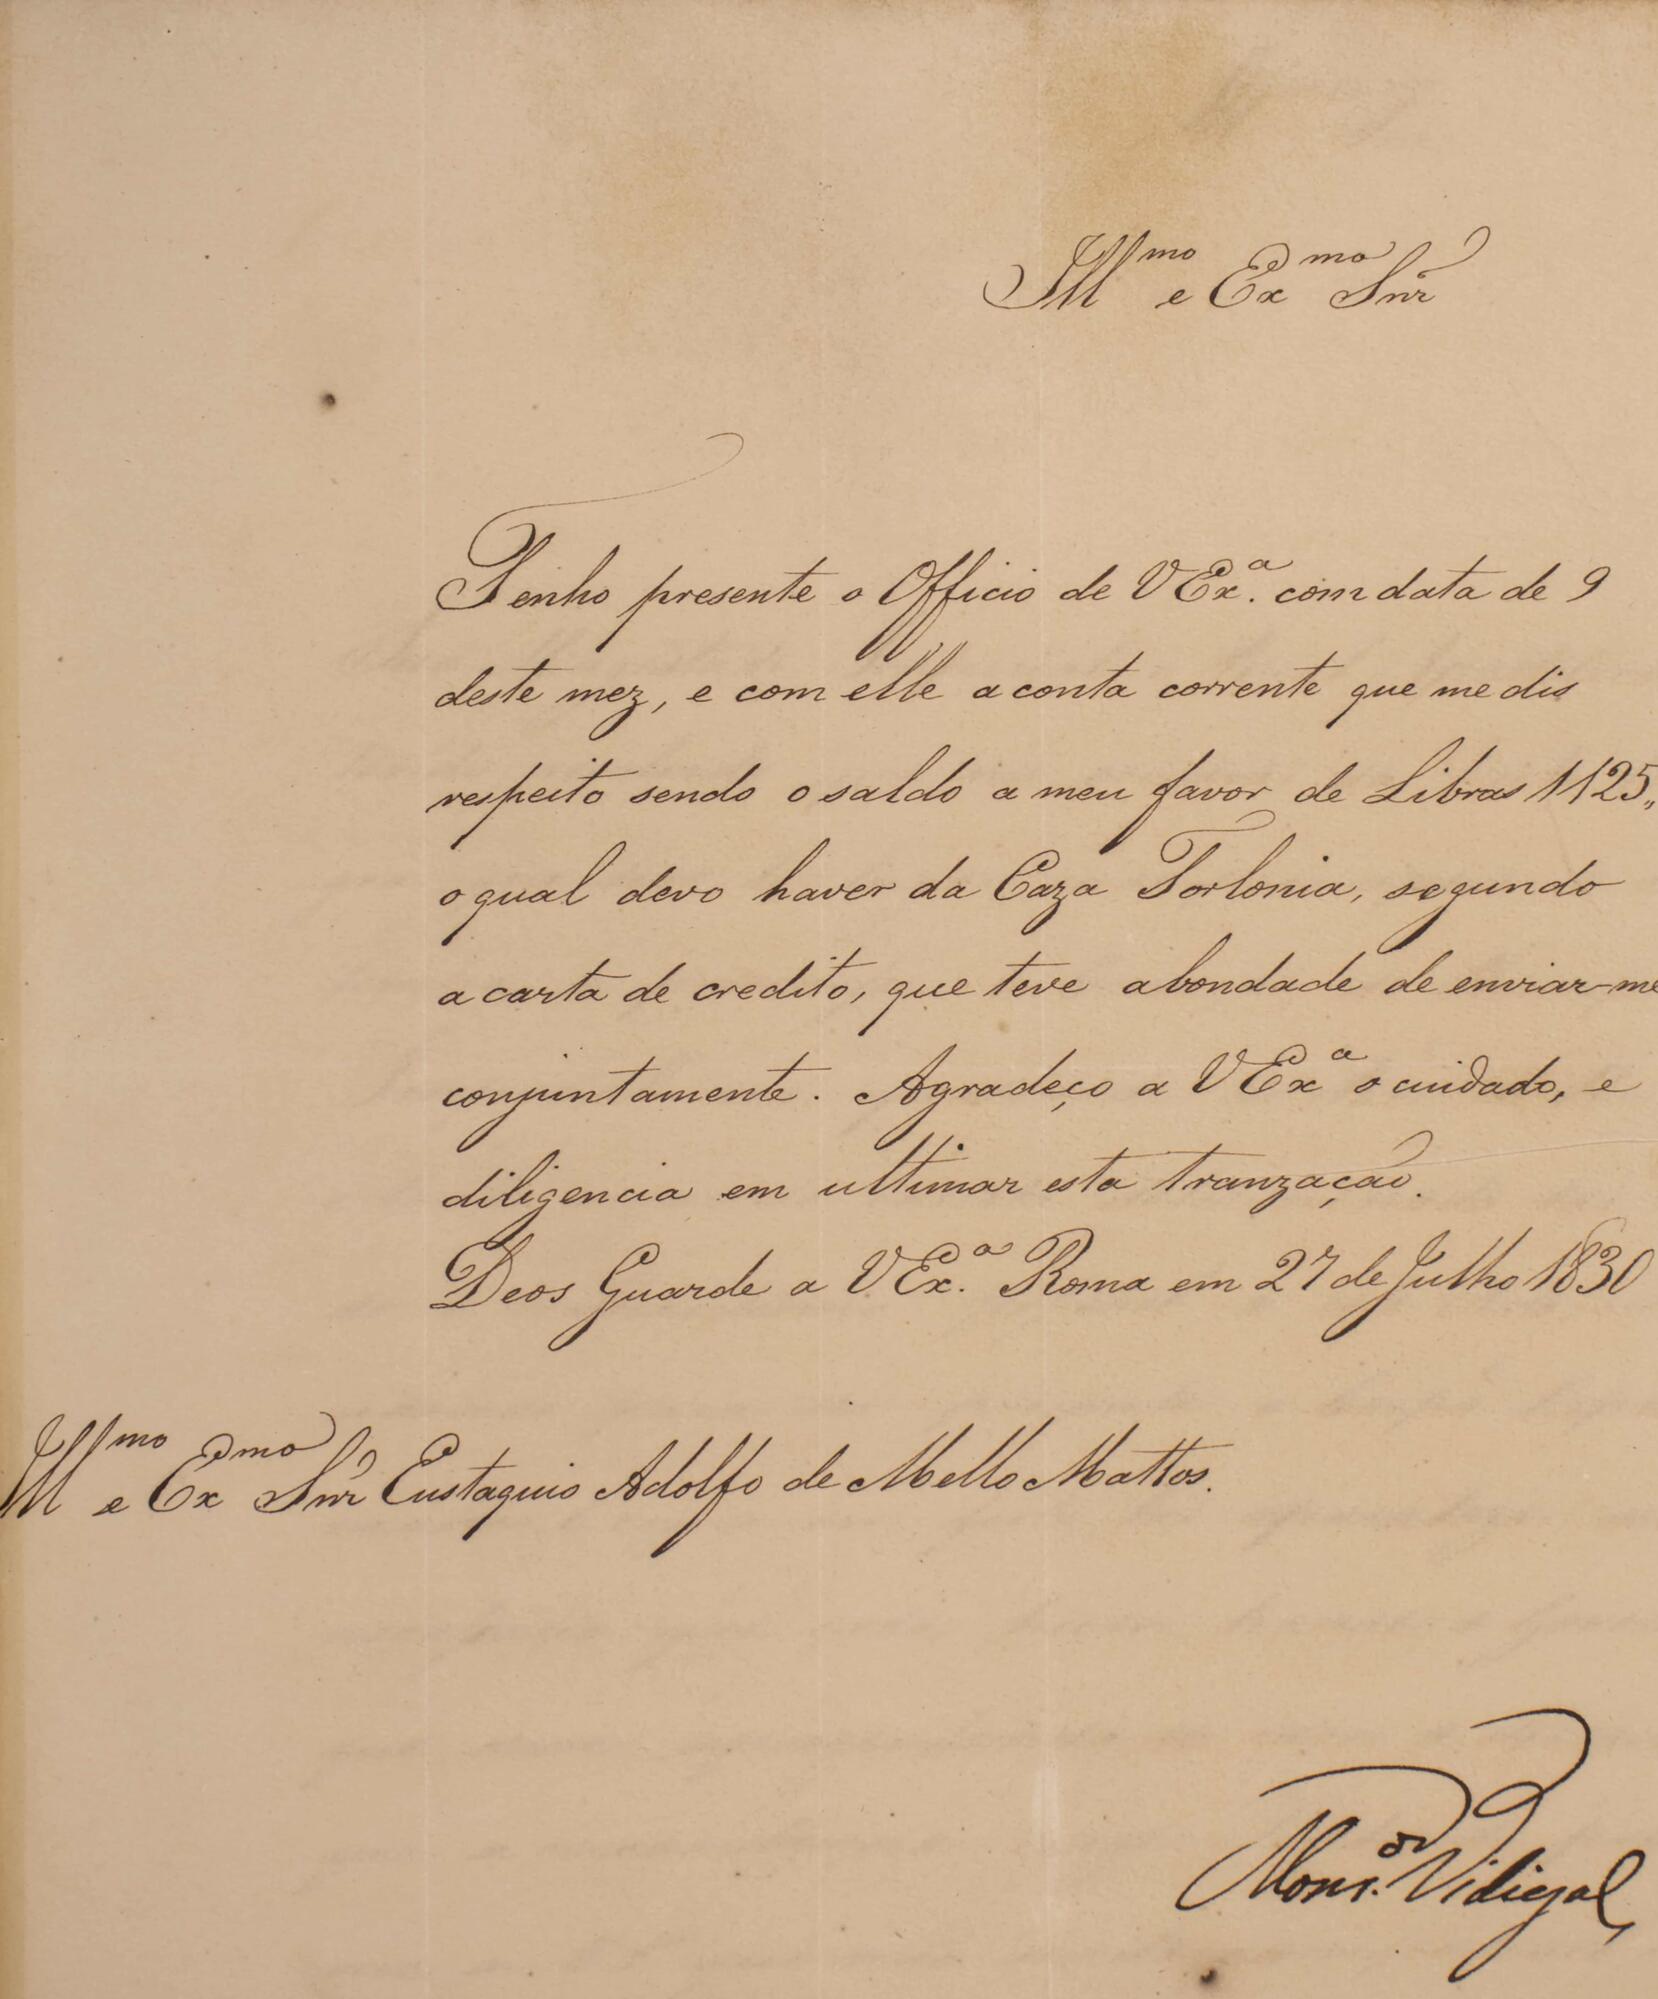 Ill^mo e Ex^mo Snr
Tenho presente o Officio de V Ex.ª com data de 9
deste mez, e com elle a conta corrente que me dis
respeito sendo o saldo a meu favor de Libras 1125,,
o qual devo haver da Caza Torlonia, segundo
a carta de credito, que teve a bondade de enviar-me
conjuntamente. Agradeço a V Exª o cuidado, e
diligencia em ultimar esta tranzação.
Deos Guarde a V Ex.ª Roma em 27 de Julho 1830
Ill^mo e Ex^mo Snr Eustaquio Adolfo de Mello Mattos.
Mons.^or Vidigal